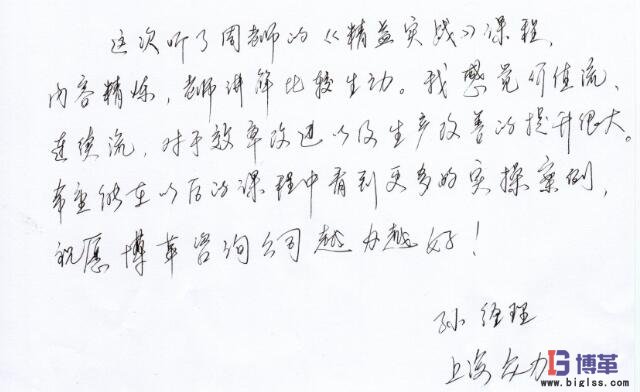 这次听了周老师的《精益实战》课程,
内容精炼,老师讲解比较生动。我感觉价值流、
连续流,对于效率改进以及生产改善的提升很大。
希望能在以后的课程中看到更多的实操案例,
祝愿博革咨询公司越办越好!
孙经理
上海友力
博革
www.biglss.com